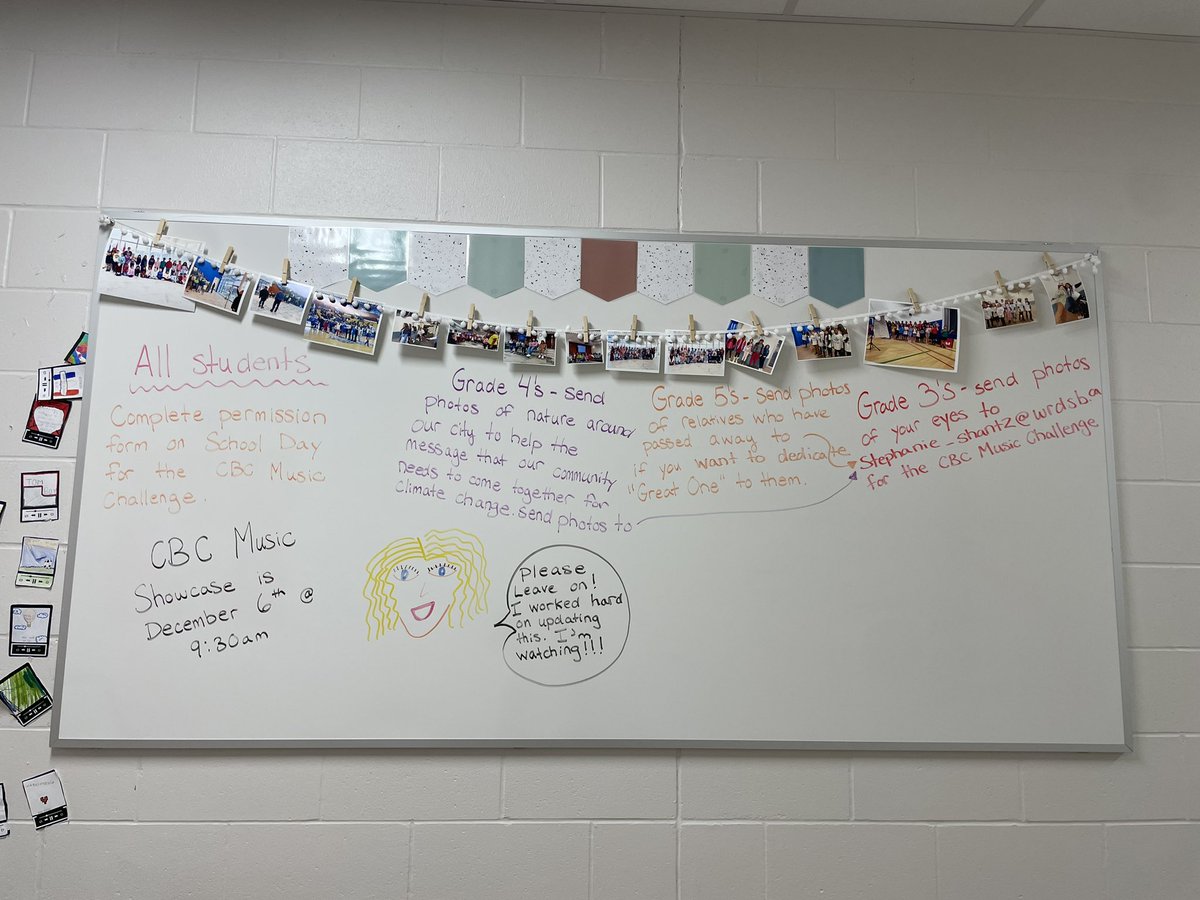 All students
Complete permission
form on School Day
for the CBC Music
Challenge.
CBC Music
Showcase is
December 6th @
9:30am
Grade 4's - send
photos of nature around
our city to help the
message that our community
needs to come together for
climate change. Send photos to
Please
Leave on!
I worked hard
on updating
this. I'm
watching!!!
Grade 5's - send photos
of relatives who have
passed away to
if you want to dedicate
"Great One" to them.
Grade 3's - send photos
of your eyes to
Stephanie_shantz@wrdsb.ca
for the CBC Music Challenge